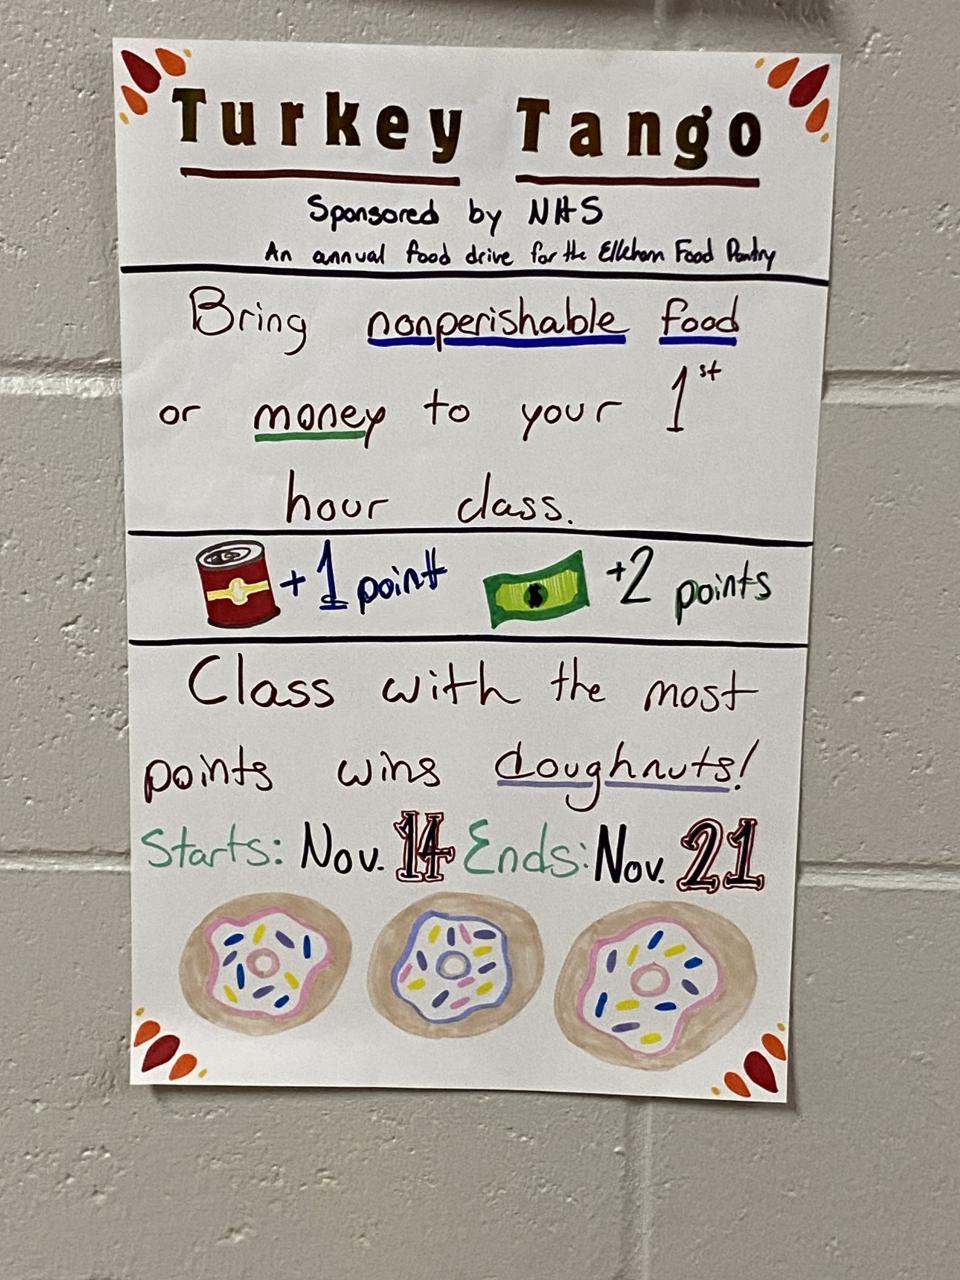 Turkey Tango
Sponsored by NHS
An annual food drive for the Elkhorn Food Pantry
Bring nonperishable food
or money to your 1st
hour class.
+1 point $ +2 points
Class with the most
points wins doughnuts!
Starts: Nov. 14 Ends: Nov. 21